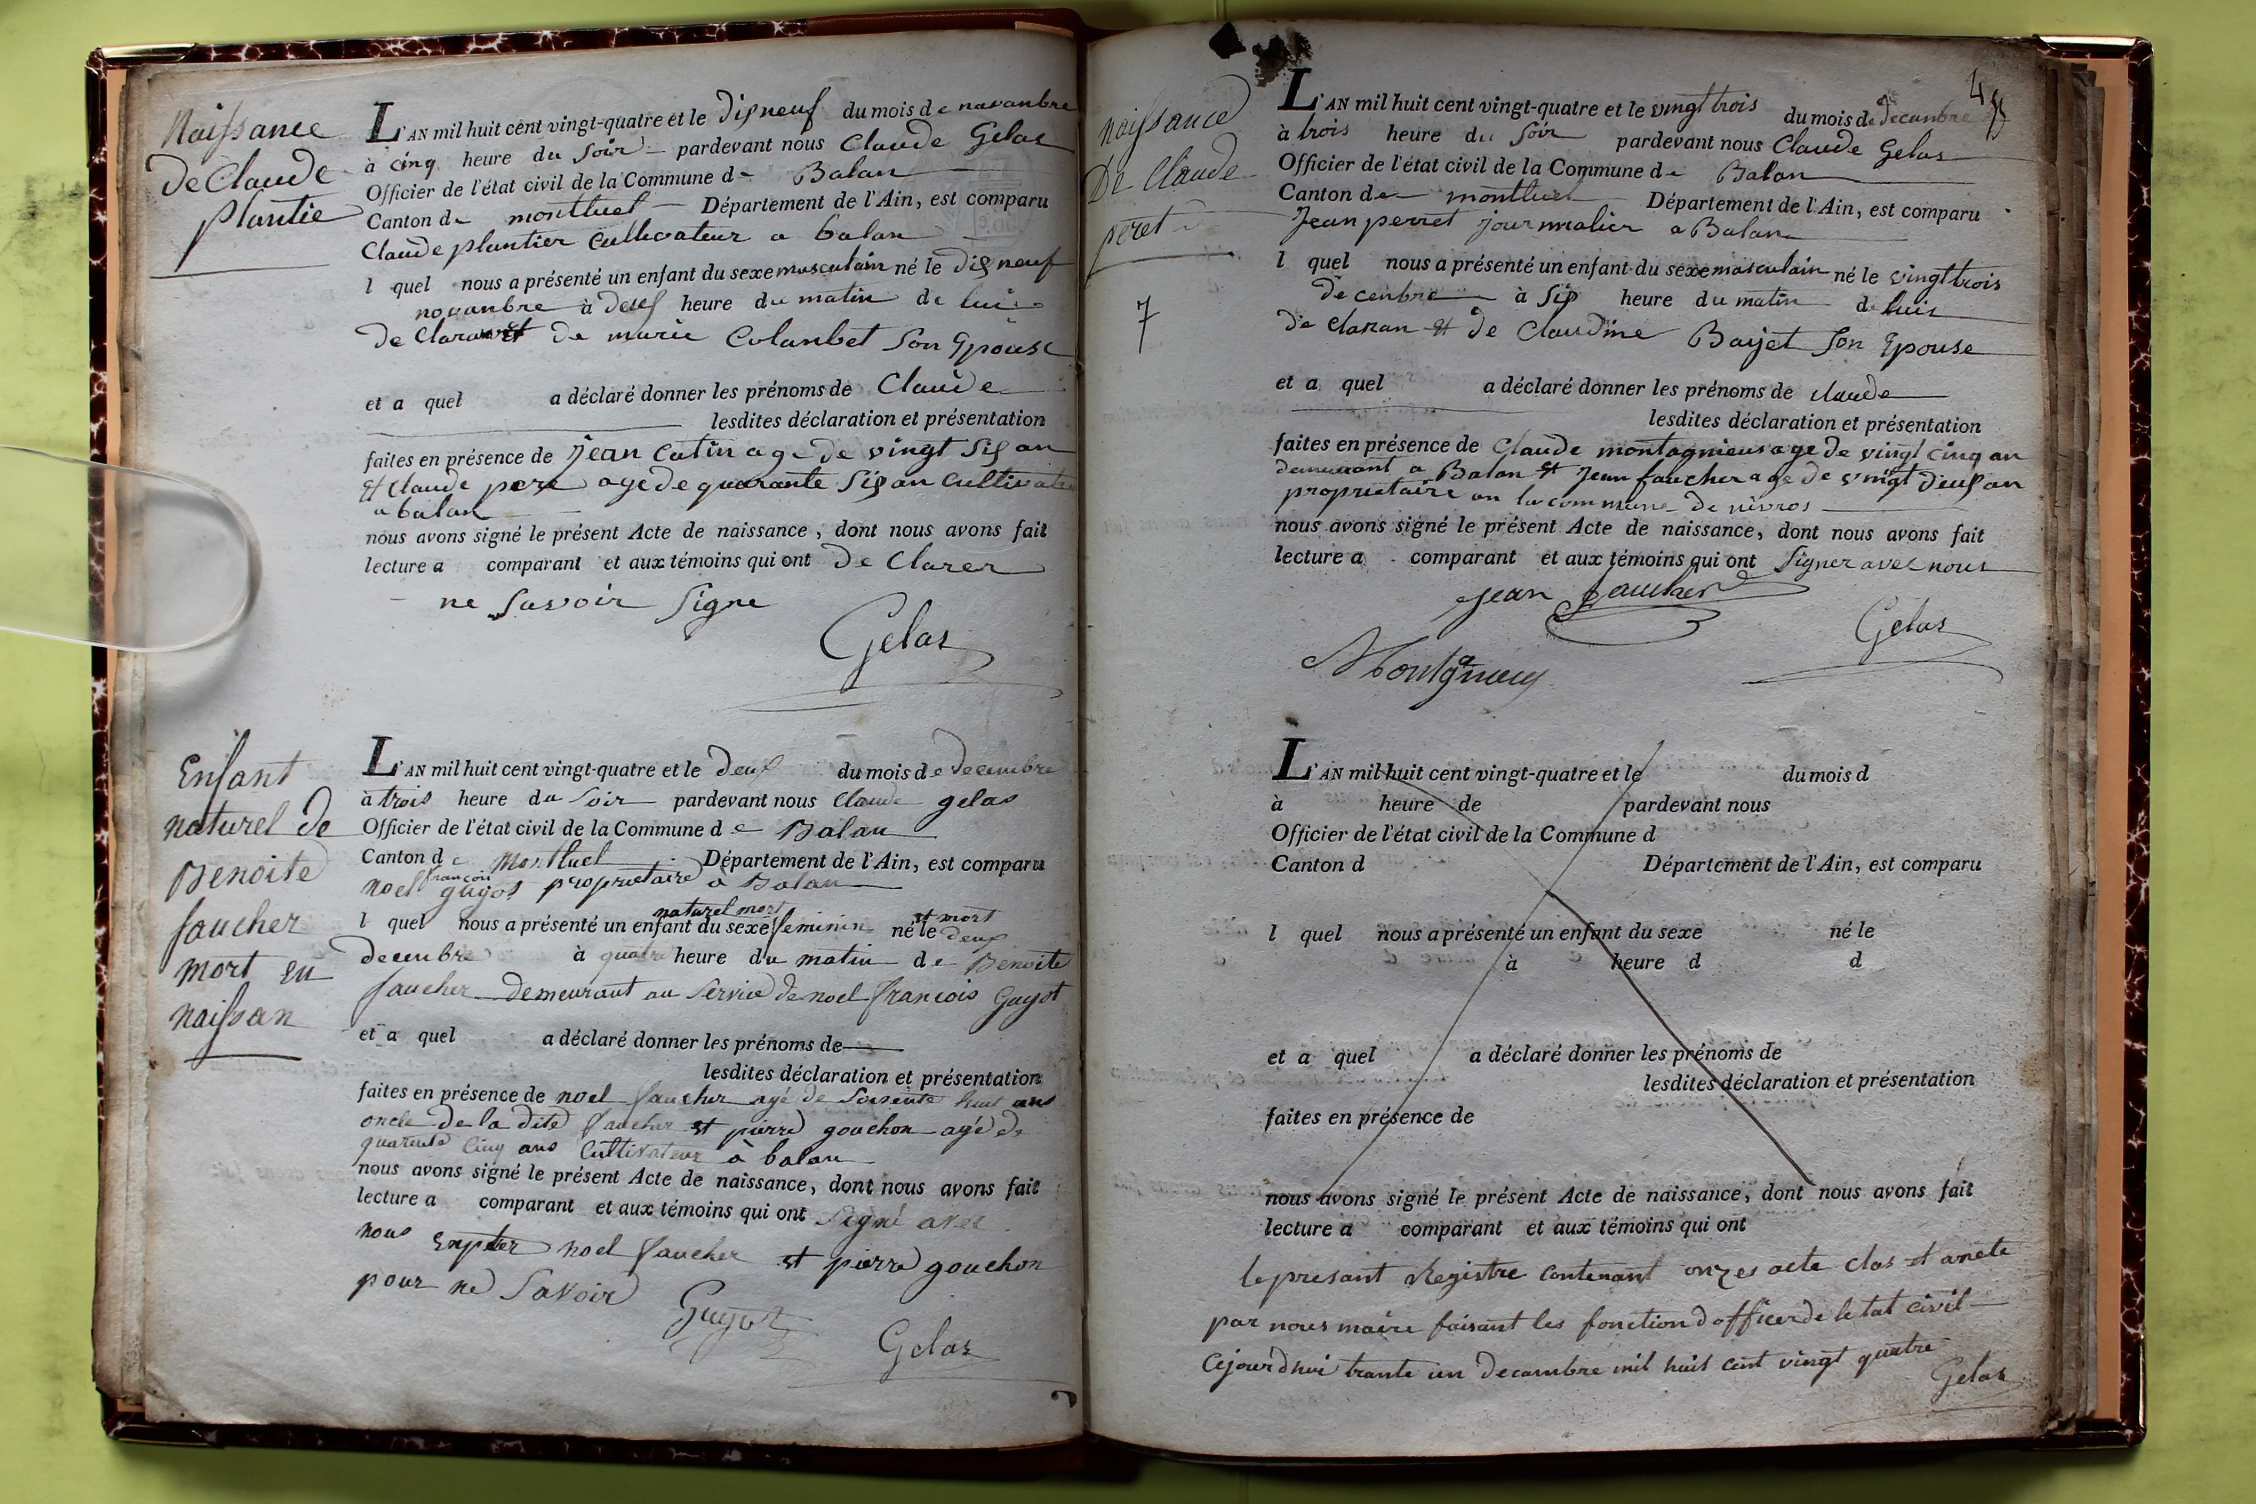 Naissance
De Claude
plantié
L'AN mil huit cent vingt-quatre et le disneuf du mois de navanbre
à cinq heure du soir pardevant nous Claude Gelas
Officier de l'état civil de la Commune de Balan
Canton de montluel Département de l'Ain, est comparu
Claude plantier cultivateur a balan
l quel nous a présenté un enfant du sexe masculain né le disneuf
novanbre à deus heure du matin de lui
de Claran et de marie Colanbet son Epouse
et a quel a déclaré donner les prénoms de Claude
lesdites déclaration et présentation
faites en présence de jean Catin age de vingt sis an
et Claude pere age de quarante sis an cultivateu
a balan
nous avons signé le présent Acte de naissance, dont nous avons fait
lecture a comparant et aux témoins qui ont de Clarer
ne savoir signe
Gelas
Enfant
naturel de
Benoite
faucher
mort en
naissan
L'AN mil huit cent vingt-quatre et le deux du mois de decembre
à trois heure du soir pardevant nous Claude gelas
Officier de l'état civil de la Commune de Balan
Canton de Montluel Département de l'Ain, est comparu
noel françois guyot proprietaire à Balan
l quel nous a présenté un enfant naturel mort du sexe feminin né le et mort deux
decembre à quatre heure du matin de Benoite
faucher demeurant au service de noel françois Guyot
et a quel a déclaré donner les prénoms de
lesdites déclaration et présentation
faites en présence de noel faucher agé de soisente huit ans
oncle de la dite faucher et pierre gouchon agé de
quarente cinq ans Cultivateur à balan
nous avons signé le présent Acte de naissance, dont nous avons fait
lecture a comparant et aux témoins qui ont signé avec
nous Expter noel faucher et pierre gouchon
pour ne savoir
Guyot
Gelas
4
naissance
De Claude
peret
7
L'AN mil huit cent vingt-quatre et le vingt trois du mois de decanbre
à trois heure du soir pardevant nous Claude Gelas
Officier de l'état civil de la Commune de Balan
Canton de montluel Département de l'Ain, est comparu
Jean perret journalier a Balan
l quel nous a présenté un enfant du sexe masculain né le vingt trois
decenbre à sis heure du matin de luis
de claran et de Claudine Baijet son Epouse
et a quel a déclaré donner les prénoms de claude
lesdites déclaration et présentation
faites en présence de Claude montagnieus age de vingt cinq an
demeurant a Balan et Jean faucher age de vingt deus an
proprietaire an la commune de nivros
nous avons signé le présent Acte de naissance, dont nous avons fait
lecture a comparant et aux témoins qui ont signer avec nous
jean faucher
Gelas
L'AN mil huit cent vingt-quatre et le du mois d
à heure de pardevant nous
Officier de l'état civil de la Commune d
Canton d Département de l'Ain, est comparu
l quel nous a présenté un enfant du sexe né le
à heure d d
et a quel a déclaré donner les prénoms de
lesdites déclaration et présentation
faites en présence de
nous avons signé le présent Acte de naissance, dont nous avons fait
lecture a comparant et aux témoins qui ont
le presant Registre contenant onzes acte clos et arreté
par nous maire faisant les fonction d officer de letat civil
Cejourdhui trante un decambre mil huit cent vingt quatre
Gelas